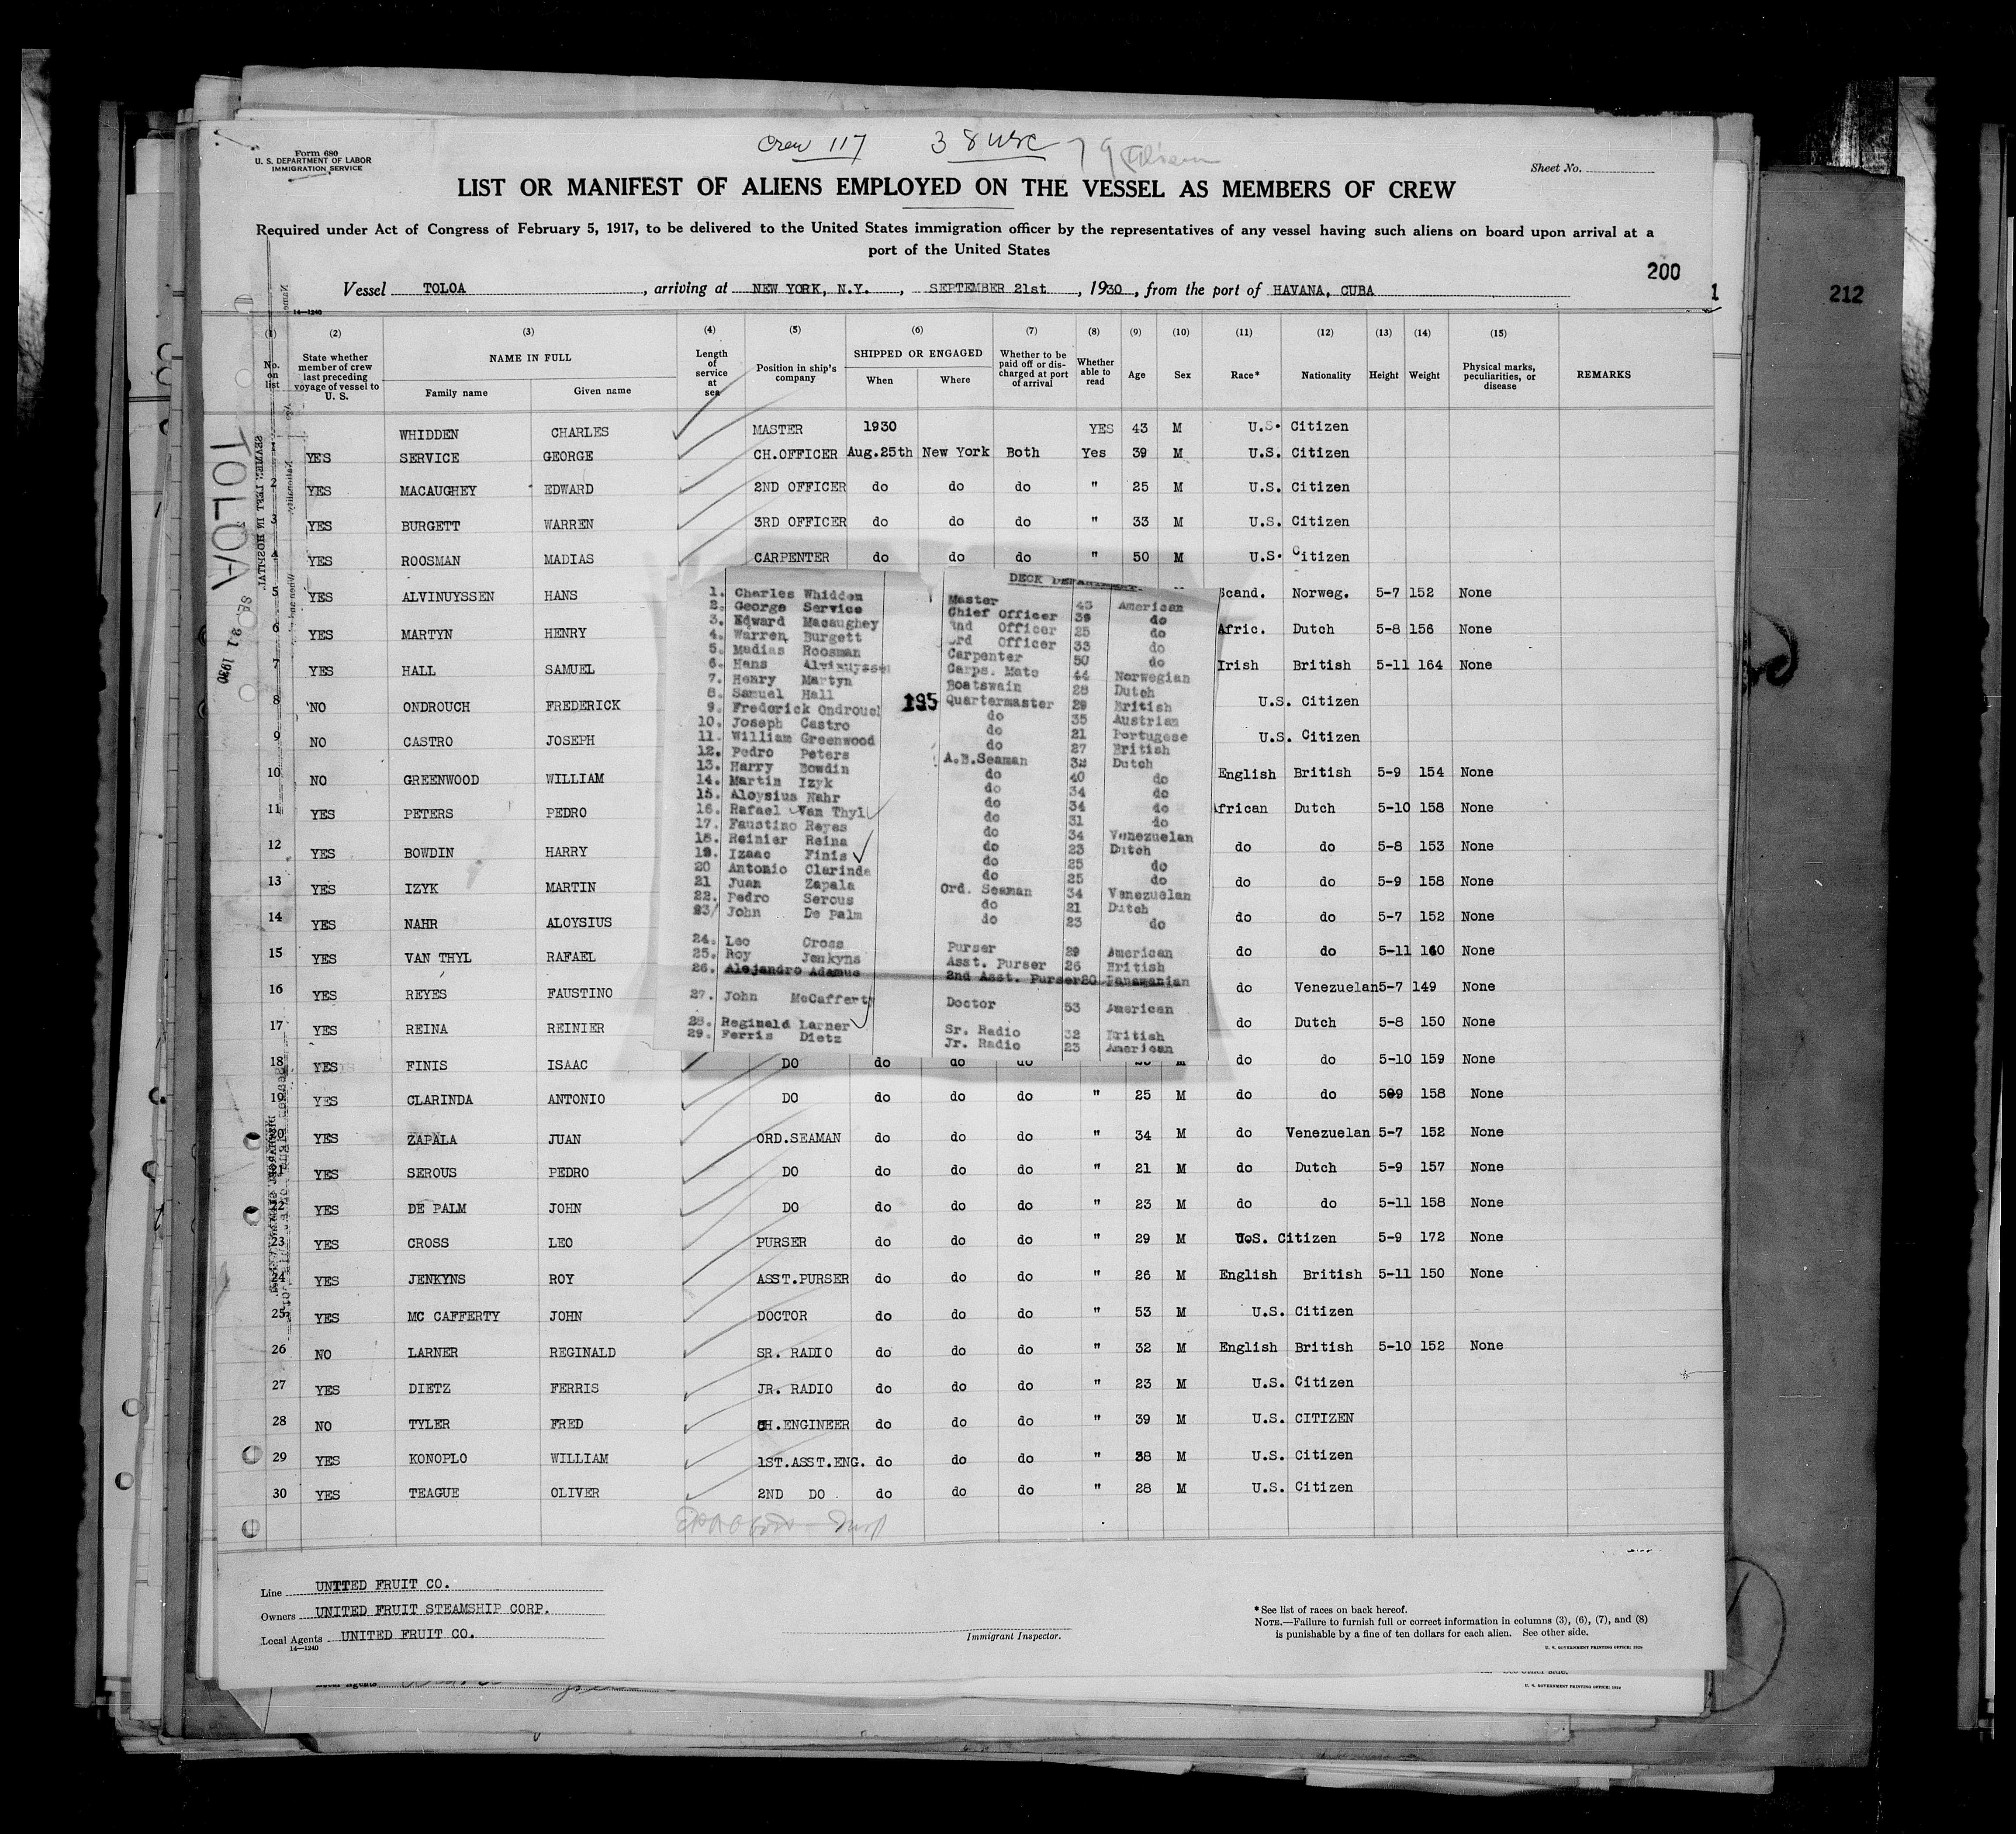 Form 680
U. S. DEPARTMENT OF LABOR
IMMIGRATION SERVICE
Crew 117 38 USC 79 Aliens
Sheet No.
LIST OR MANIFEST OF ALIENS EMPLOYED ON THE VESSEL AS MEMBERS OF CREW
Required under Act of Congress of February 5, 1917, to be delivered to the United States immigration officer by the representatives of any vessel having such aliens on board upon arrival at a
port of the United States
200
212
Vessel TOLOA, arriving at NEW YORK, N.Y., SEPTEMBER 21st, 1930, from the port of HAVANA, CUBA
1
14—1240
(1) (2) (3) (4) (5) (6) (7) (8) (9) (10) (11) (12) (13) (14) (15)
No. on list State whether member of crew last preceding voyage of vessel to U. S. NAME IN FULL Family name Given name Length of service at sea Position in ship's company SHIPPED OR ENGAGED When Where Whether to be paid off or discharged at port of arrival Whether able to read Age Sex Race* Nationality Height Weight Physical marks, peculiarities, or disease REMARKS
WHIDDEN CHARLES MASTER 1930 YES 43 M U.S. Citizen
1 YES SERVICE GEORGE CH.OFFICER Aug.25th New York Both Yes 39 M U.S. Citizen
2 YES MACAUGHEY EDWARD 2ND OFFICER do do do " 25 M U.S. Citizen
3 YES BURGETT WARREN 3RD OFFICER do do do " 33 M U.S. Citizen
4 YES ROOSMAN MADIAS CARPENTER do do do " 50 M U.S. Citizen
5 YES ALVINUYSSEN HANS Scand. Norweg. 5-7 152 None
6 YES MARTYN HENRY Afric. Dutch 5-8 156 None
7 YES HALL SAMUEL Irish British 5-11 164 None
8 NO ONDROUCH FREDERICK U.S. Citizen
9 NO CASTRO JOSEPH U.S. Citizen
10 NO GREENWOOD WILLIAM English British 5-9 154 None
11 YES PETERS PEDRO African Dutch 5-10 158 None
12 YES BOWDIN HARRY do do 5-8 153 None
13 YES IZYK MARTIN do do 5-9 158 None
14 YES NAHR ALOYSIUS do do 5-7 152 None
15 YES VAN THYL RAFAEL do do 5-11 160 None
16 YES REYES FAUSTINO do Venezuelan 5-7 149 None
17 YES REINA REINIER do Dutch 5-8 150 None
18 YES FINIS ISAAC DO do do do M do do 5-10 159 None
19 YES CLARINDA ANTONIO DO do do do " 25 M do do 509 158 None
20 YES ZAPALA JUAN ORD.SEAMAN do do do " 34 M do Venezuelan 5-7 152 None
21 YES SEROUS PEDRO DO do do do " 21 M do Dutch 5-9 157 None
22 YES DE PALM JOHN DO do do do " 23 M do do 5-11 158 None
23 YES CROSS LEO PURSER do do do " 29 M U.S. Citizen 5-9 172 None
24 YES JENKYNS ROY ASST.PURSER do do do " 26 M English British 5-11 150 None
25 YES MC CAFFERTY JOHN DOCTOR do do do " 53 M U.S. Citizen
26 NO LARNER REGINALD SR. RADIO do do do " 32 M English British 5-10 152 None
27 YES DIETZ FERRIS JR. RADIO do do do " 23 M U.S. Citizen
28 NO TYLER FRED CH.ENGINEER do do do " 39 M U.S. CITIZEN
29 YES KONOPLO WILLIAM 1ST.ASST.ENG. do do do " 38 M U.S. Citizen
30 YES TEAGUE OLIVER 2ND DO do do do " 28 M U.S. Citizen
DECK DEPARTMENT.
1. Charles Whidden Master 43 American
2. George Service Chief Officer 39 do
3. Edward Macaughey 2nd Officer 25 do
4. Warren Burgett 3rd Officer 33 do
5. Madias Roosman Carpenter 50 do
6. Hans Alvinuyssen Carps. Mate 44 Norwegian
7. Henry Martyn Boatswain 28 Dutch
8. Samuel Hall Quartermaster 29 British
9. Frederick Ondrouch do 35 Austrian
10. Joseph Castro do 21 Portugese
11. William Greenwood do 27 British
12. Pedro Peters A.B.Seaman 32 Dutch
13. Harry Bowdin do 40 do
14. Martin Izyk do 34 do
15. Aloysius Nahr do 34 do
16. Rafael Van Thyl do 31 do
17. Faustino Reyes do 34 Venezuelan
18. Reinier Reina do 23 Dutch
19. Izaac Finis do 25 do
20 Antonio Clarinda do 25 do
21 Juan Zapala Ord. Seaman 34 Venezuelan
22. Pedro Serous do 21 Dutch
23/ John De Palm do 23 do
24. Leo Cross Purser 29 American
25. Roy Jenkyns Asst. Purser 26 British
26. Alejandro Adamus 2nd Asst. Purser 20 Panamanian
27. John McCafferty Doctor 53 American
28. Reginald Larner Sr. Radio 32 British
29. Ferris Dietz Jr. Radio 23 American
195
TOLOA
SE. 21 1930
SEAMEN LEFT IN HOSPITAL
Line UNITED FRUIT CO.
Owners UNITED FRUIT STEAMSHIP CORP.
Local Agents UNITED FRUIT CO.
14—1240
Immigrant Inspector.
*See list of races on back hereof.
NOTE.—Failure to furnish full or correct information in columns (3), (6), (7), and (8)
is punishable by a fine of ten dollars for each alien. See other side.
U. S. GOVERNMENT PRINTING OFFICE: 1930
Local Agents
U. S. GOVERNMENT PRINTING OFFICE: 1924